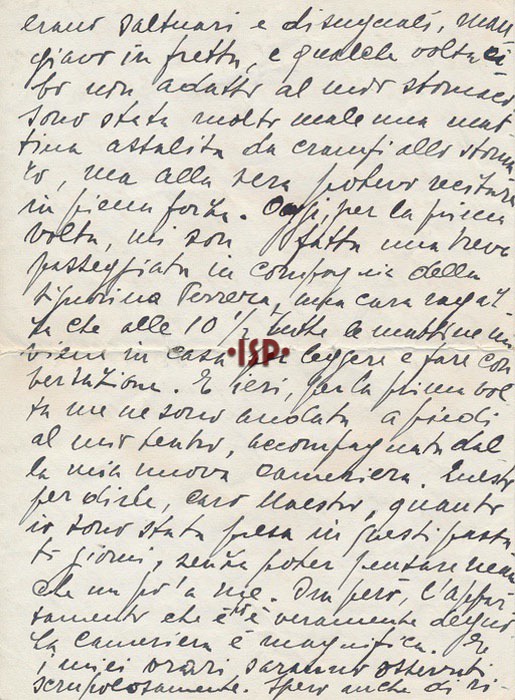 erano saltuari e disuguali, man
giavo in fretta, e qualche volta ci
bo non adatto al mio stomaco
sono stata molto male una mat
tina assalita da crampi allo stoma
co, ma alla sera potevo recitare
in piena forza. Oggi, per la prima
volta, mi son fatta una breve
passeggiata in compagnia della
signorina Ferrera, una cara ragaz
za che alle 10 1/2 tutte le mattine mi
viene in casa per leggere e fare con
versazione. E ieri, per la prima vol
ta me ne sono andata a piedi
al mio teatro, accompagnata dal
la mia nuova cameriera. Questo
per dirle, caro Maestro, quanto
io sono stata presa in questi passa
ti giorni, senza poter pensare nean
che un po' a me. Ora però, l'appar
tamento che è veramente degno
La cameriera è magnifica. Le
i miei orari saranno osservati
scrupolosamente. Spero anche di ri-
·ISP·